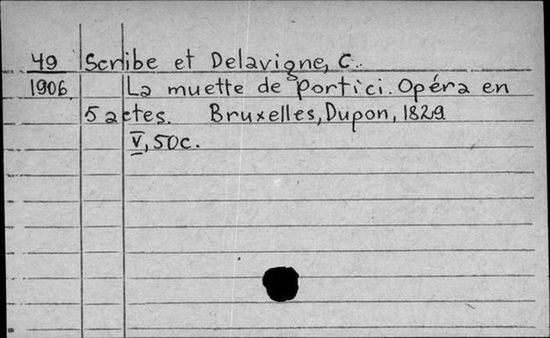 49 Scribe et Delavigne, C.
1906 La muette de Portici. Opéra en
5 actes. Bruxelles, Dupon, 1829
V, 50c.